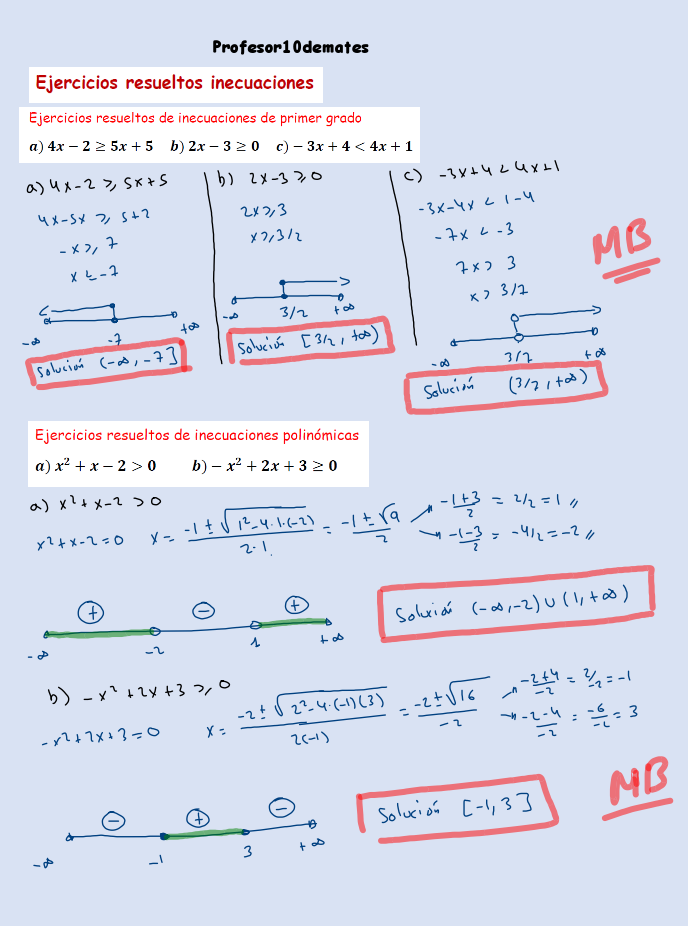 Profesor10demates
Ejercicios resueltos inecuaciones
Ejercicios resueltos de inecuaciones de primer grado
a) 4x − 2 ≥ 5x + 5    b) 2x − 3 ≥ 0    c) − 3x + 4 < 4x + 1
a) 4x-2 ≥ 5x+5
4x-5x ≥ 5+2
-x ≥ 7
x ≤ -7
-∞    -7    +∞
Solución (-∞, -7]
b) 2x-3 ≥ 0
2x ≥ 3
x ≥ 3/2
-∞    3/2    +∞
Solución [3/2, +∞)
c) -3x+4 < 4x+1
-3x-4x < 1-4
-7x < -3
7x > 3
x > 3/7
-∞    3/7    +∞
Solución (3/7, +∞)
MB
Ejercicios resueltos de inecuaciones polinómicas
a) x² + x − 2 > 0    b) − x² + 2x + 3 ≥ 0
a) x²+x-2 > 0
x²+x-2=0    x = (-1 ± √(1²-4·1·(-2)))/(2·1.) = (-1 ± √9)/2
(-1+3)/2 = 2/2 = 1 //
(-1-3)/2 = -4/2 = -2 //
+    −    +
-∞    -2    1    +∞
Solución (-∞, -2) ∪ (1, +∞)
b) -x²+2x+3 ≥ 0
-x²+2x+3=0    x = (-2 ± √(2²-4·(-1)(3)))/(2(-1)) = (-2 ± √16)/-2
(-2+4)/-2 = 2/-2 = -1
(-2-4)/-2 = -6/-2 = 3
−    +    −
-∞    -1    3    +∞
Solución [-1, 3]
MB